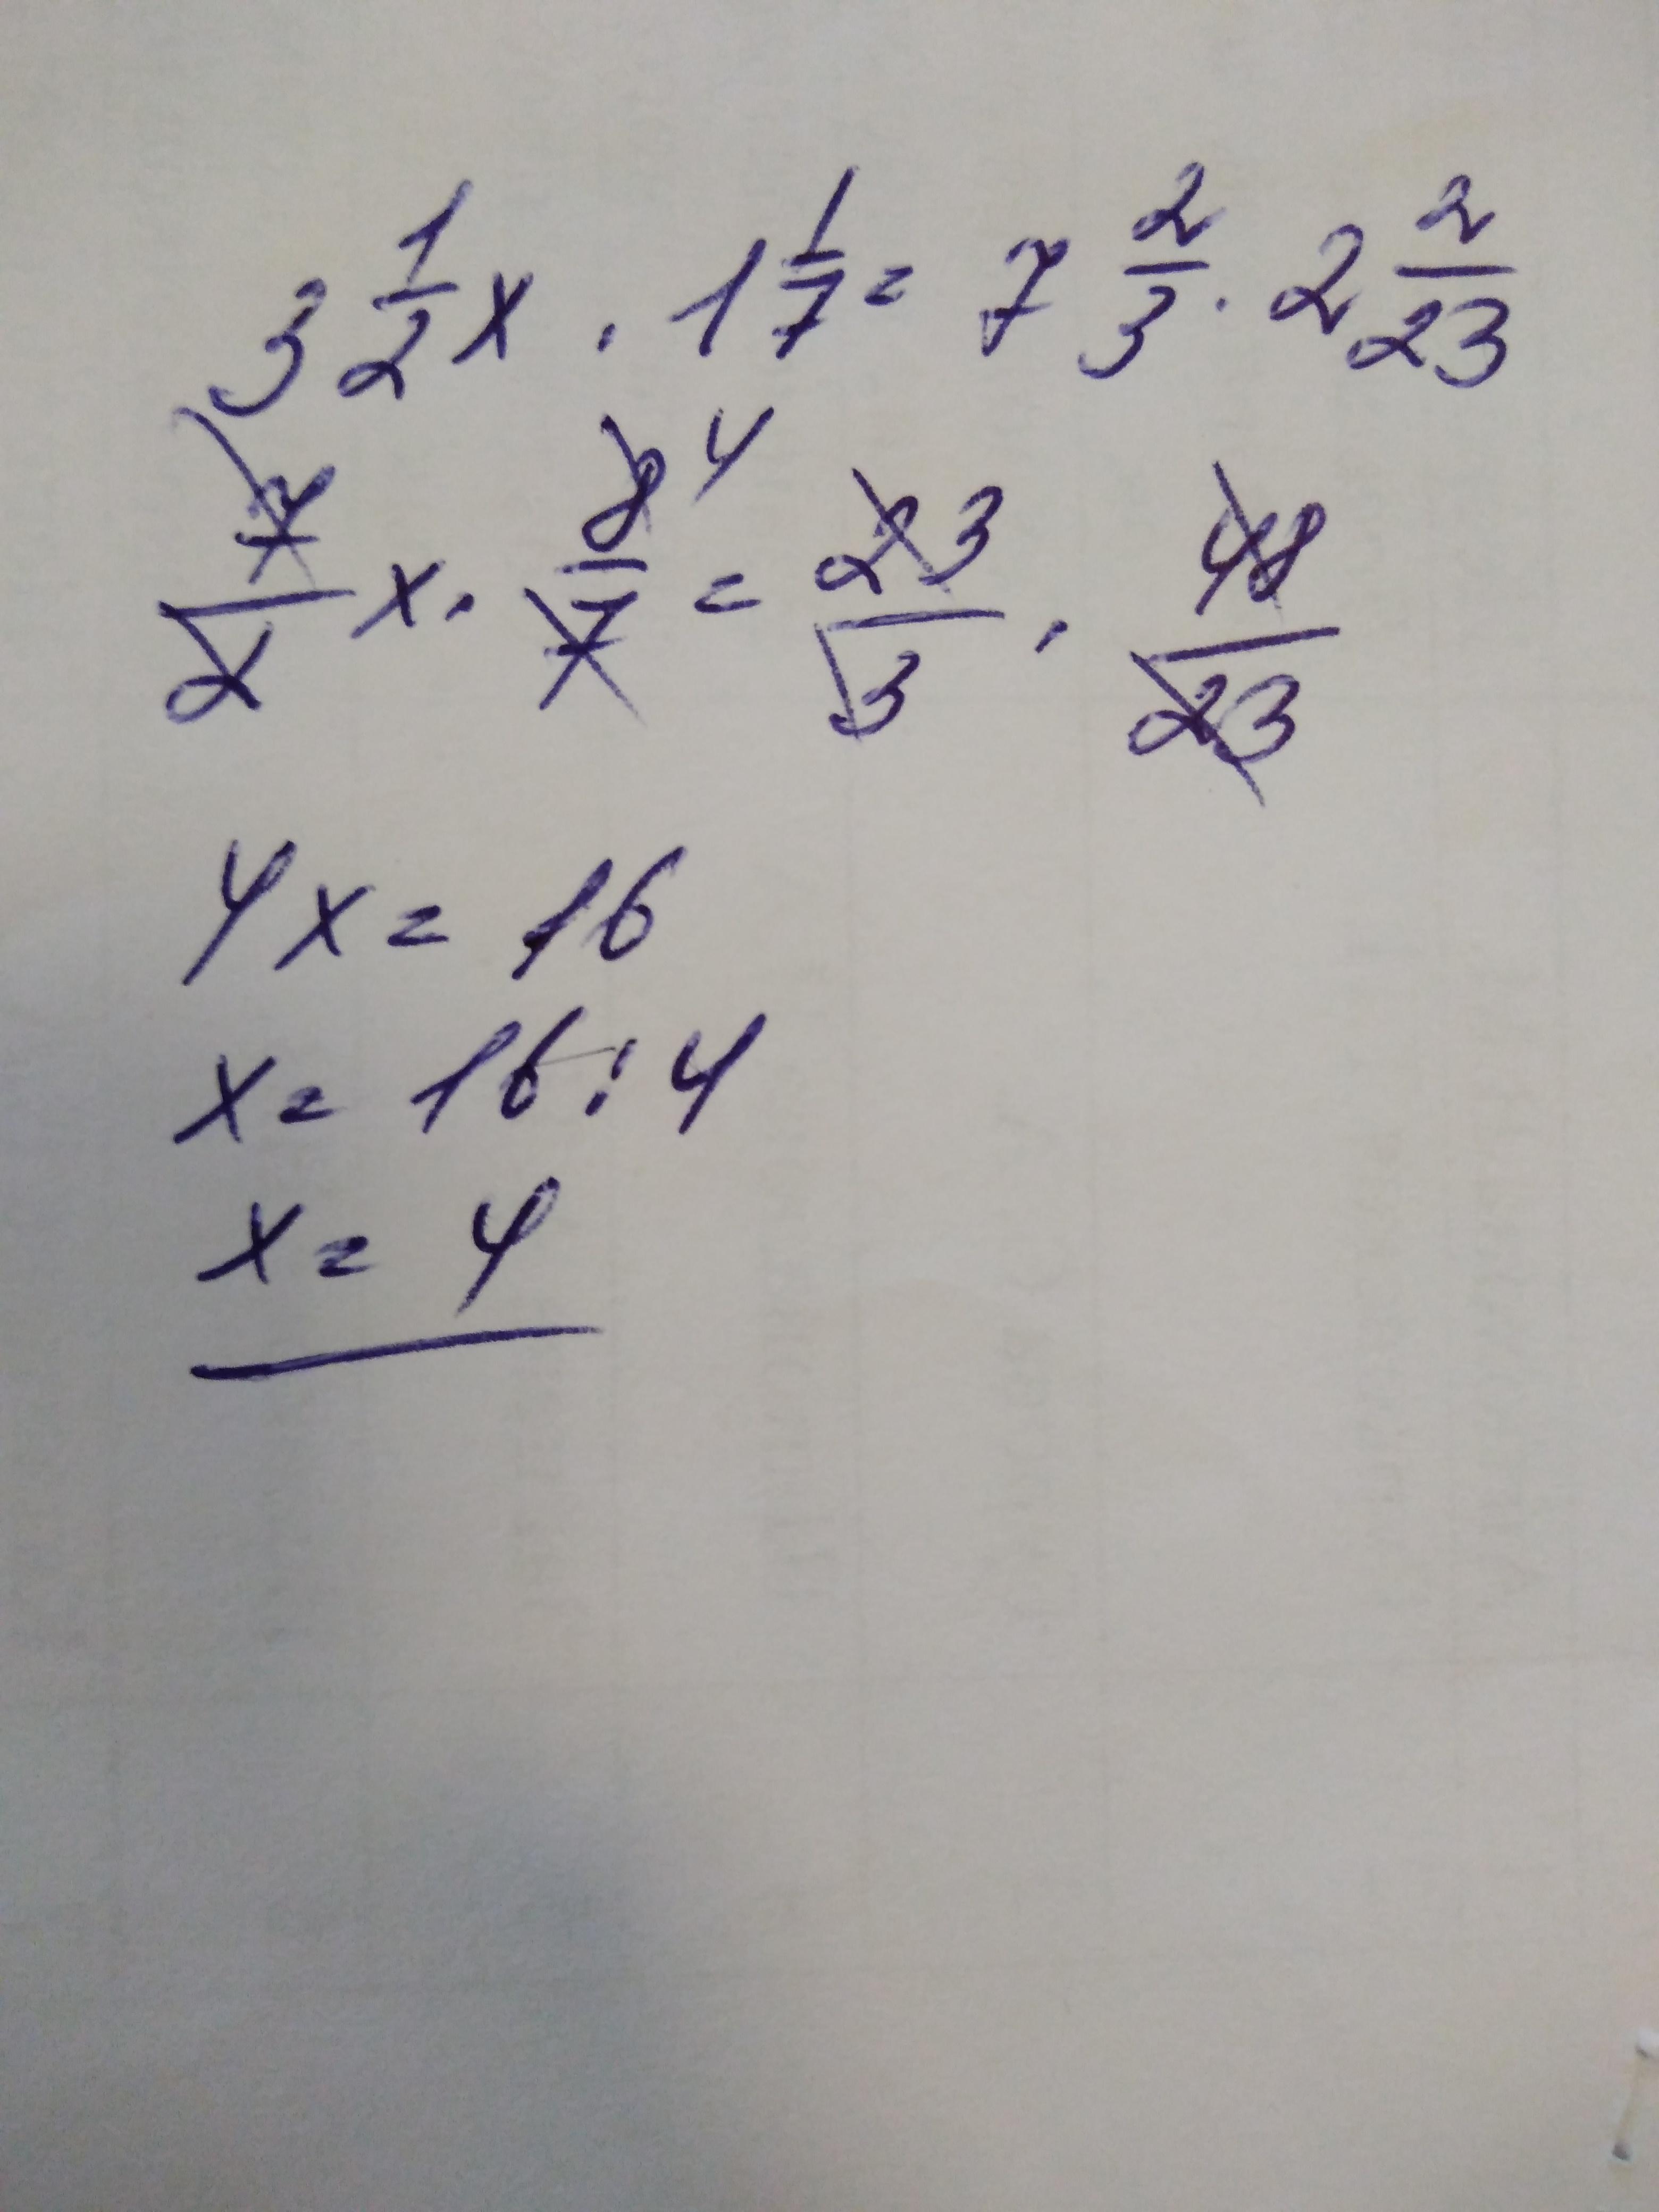 3 1/2 x · 1 1/7 = 7 2/3 · 2 2/23
7/2 x · 8/7 4 = 23/3 · 48/23
4x = 16
x = 16 : 4
x = 4